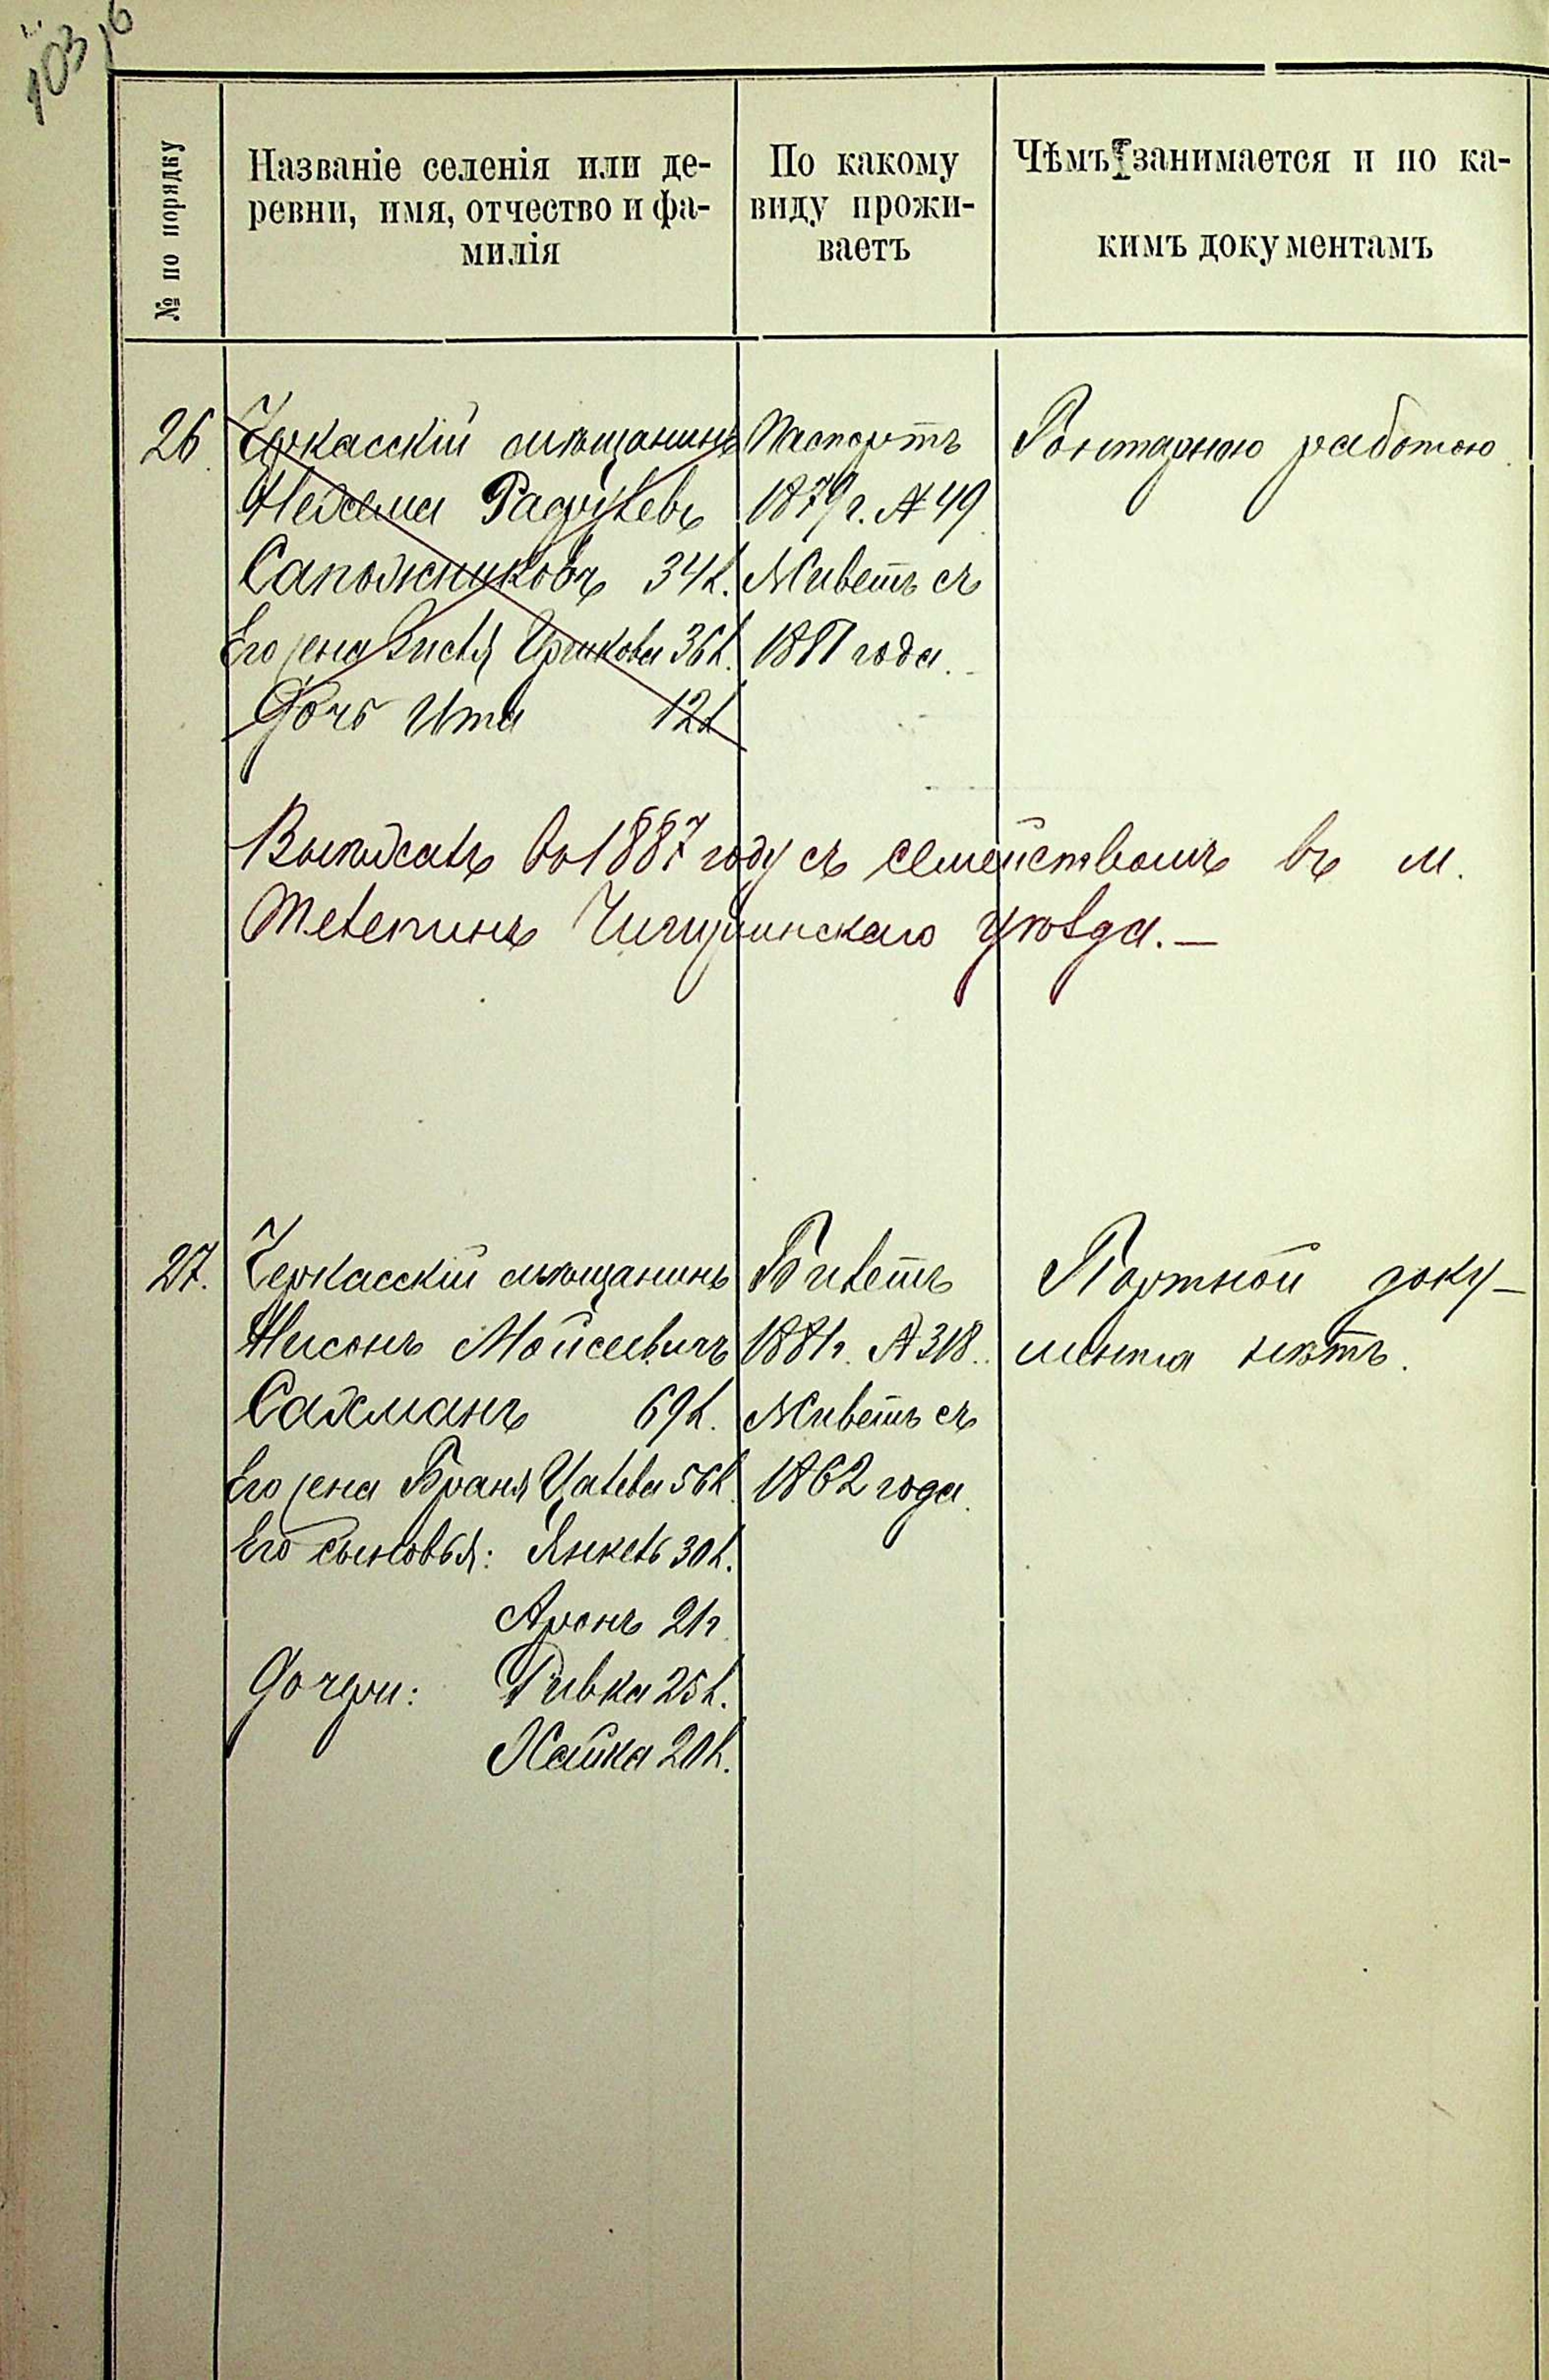 103 об
№ по порядку
Названіе селенія или де-
ревни, имя, отчество и фа-
милія
По какому
виду прожи-
ваетъ
Чѣмъ занимается и по ка-
кимъ документамъ
26
Черкасскій мѣщанинъ
Нехема
Сапожниковъ 34 л.
Его жена Зисля 36 л.
Дочь Ита 12 л
Паспортъ
1879 г. № 49
Живетъ съ
1881 года.
Гонтарною работою
Выѣхалъ во 1887 году съ семействомъ въ м.
Телепинъ Чигиринскаго уѣзда. —
27.
Черкасскій мѣщанинъ
Нисонъ Мойсеевичъ
Сахманъ 69 л.
Его жена Браня Цалева 56 л.
Его сыновья: Янкель 30 л.
Аронъ 21 г
Дочери: Ривка 25 л.
Хайка 20 л.
Билетъ
1881 г. № 318.
Живетъ съ
1862 года
Портной доку-
мента нѣтъ.